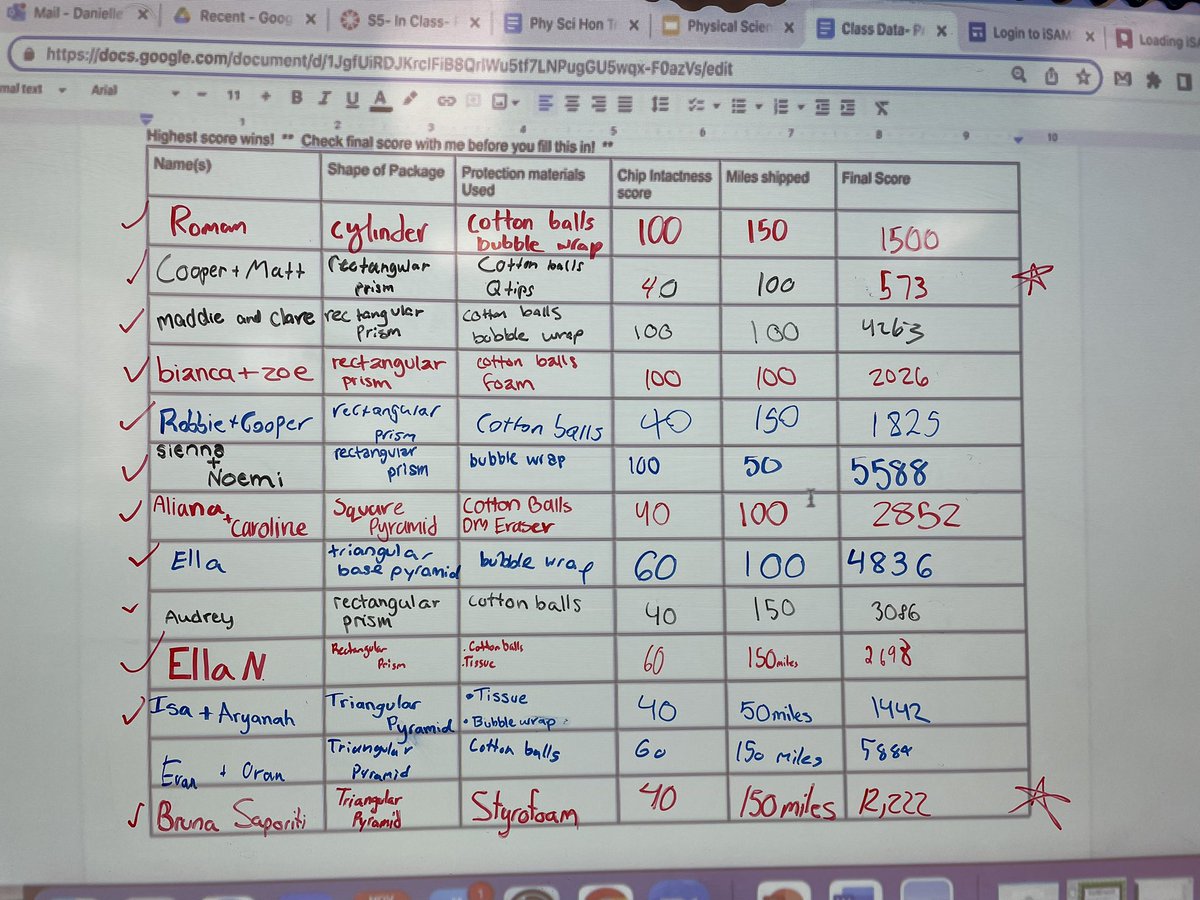 Mail - Danielle
Recent - Goog
S5- In Class-
Phy Sci Hon
Physical Scien
Class Data- P
Login to iSAM
Loading iSA
https://docs.google.com/document/d/1JgfUiRDJKrcIFiB8QrIWu5tf7LNPugGU5wqx-F0azVs/edit
mal text Arial 11 B I U A
1 2 3 4 5 6 7 8 9 10
Highest score wins! ** Check final score with me before you fill this in! **
Name(s) Shape of Package Protection materials Used Chip Intactness score Miles shipped Final Score
Roman cylinder cotton balls bubble wrap 100 150 1500
Cooper + Matt rectangular prism Cotton balls Qtips 40 100 573
maddie and clare rectangular prism cotton balls bubble wrap 100 100 4263
bianca + zoe rectangular prism cotton balls foam 100 100 2026
Robbie + Cooper rectangular prism Cotton balls 40 150 1825
sienna + Noemi rectangular prism bubble wrap 100 50 5588
Aliana + Caroline Square Pyramid Cotton Balls Dry Eraser 40 100 2852
Ella triangular base pyramid bubble wrap 60 100 4836
Audrey rectangular prism cotton balls 40 150 3086
Ella N. Rectangular Prism • Cotton balls • Tissue 60 150 miles 2698
Isa + Aryanah Triangular Pyramid • Tissue • Bubble wrap 40 50 miles 1442
Evan + Oran Triangular Pyramid Cotton balls 60 150 miles
Bruna Saporiti Triangular Pyramid Styrofoam 40 150 miles 12,222
1